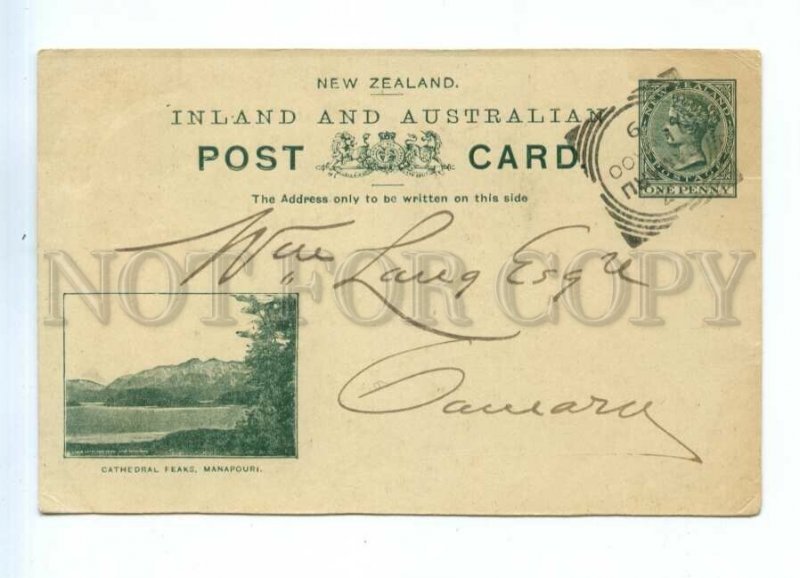 NEW ZEALAND.
INLAND AND AUSTRALIAN
POST CARD.
The Address only to be written on this side
NEW ZEALAND
POSTAGE
ONE PENNY
Wm Lang Esqre
Oamaru
CATHEDRAL PEAKS, MANAPOURI.
NOT FOR COPY